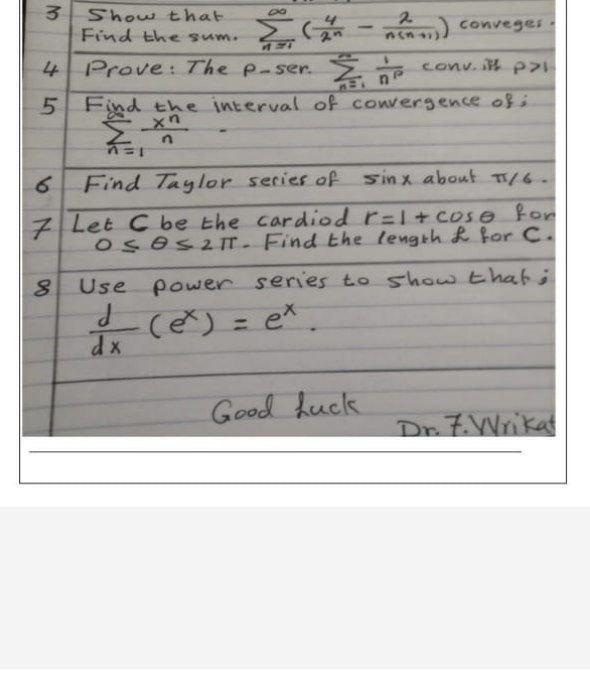 3 Show that ∞ Σ n=1 (4/2ⁿ − 2/n(n+1)) conveges.
Find the sum.
4 Prove: The p-ser. ∞ Σ n=1 1/nᵖ conv. iff p>1
5 Find the interval of convergence of;
∞ Σ n=1 xⁿ/n
6 Find Taylor series of sin x about π/6.
7 Let C be the cardiod r=1+cosθ for
0≤θ≤2π. Find the length L for C.
8 Use power series to show that;
d/dx (eˣ) = eˣ.
Good Luck
Dr. F. Wrikat